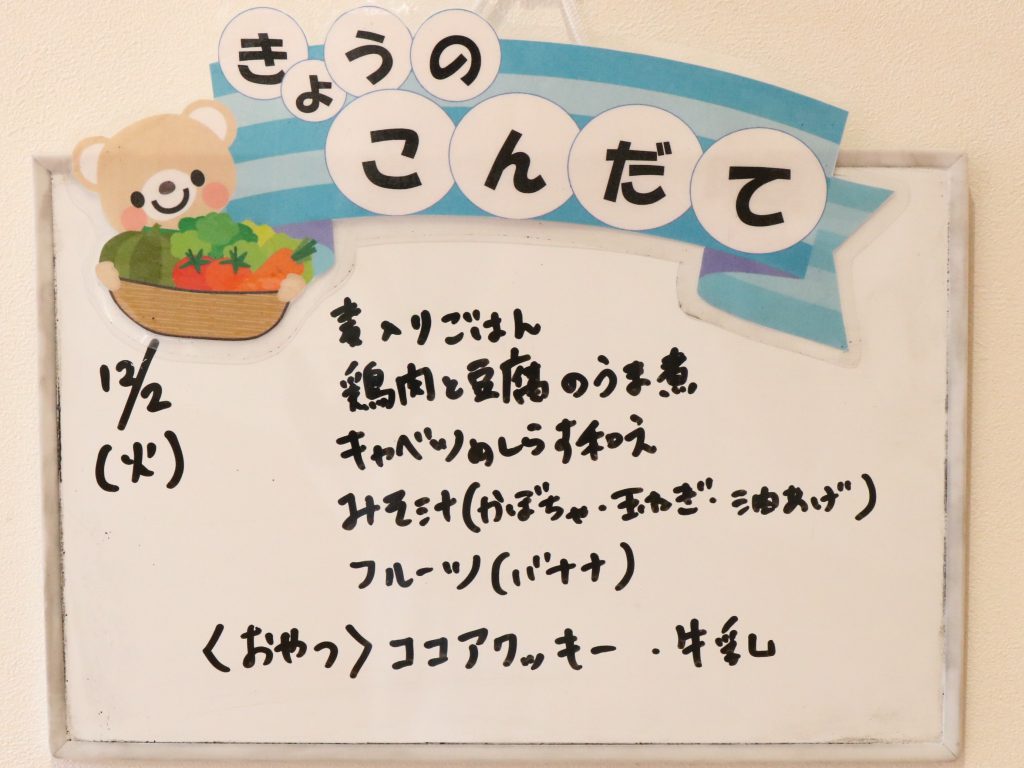 きょうの
こんだて
12/2
(火)
麦入りごはん
鶏肉と豆腐のうま煮
キャベツのしらす和え
みそ汁(かぼちゃ・玉ねぎ・油あげ)
フルーツ(バナナ)
〈おやつ〉ココアクッキー・牛乳